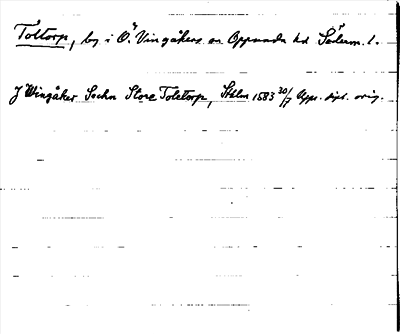 Toltorp, by i Ö Vingåkers sn Oppunda hd Söderm. l.
J Wingåker Sochn Store Toletorp, Sthlm 1583 30/7 Upps. dipl. orig.